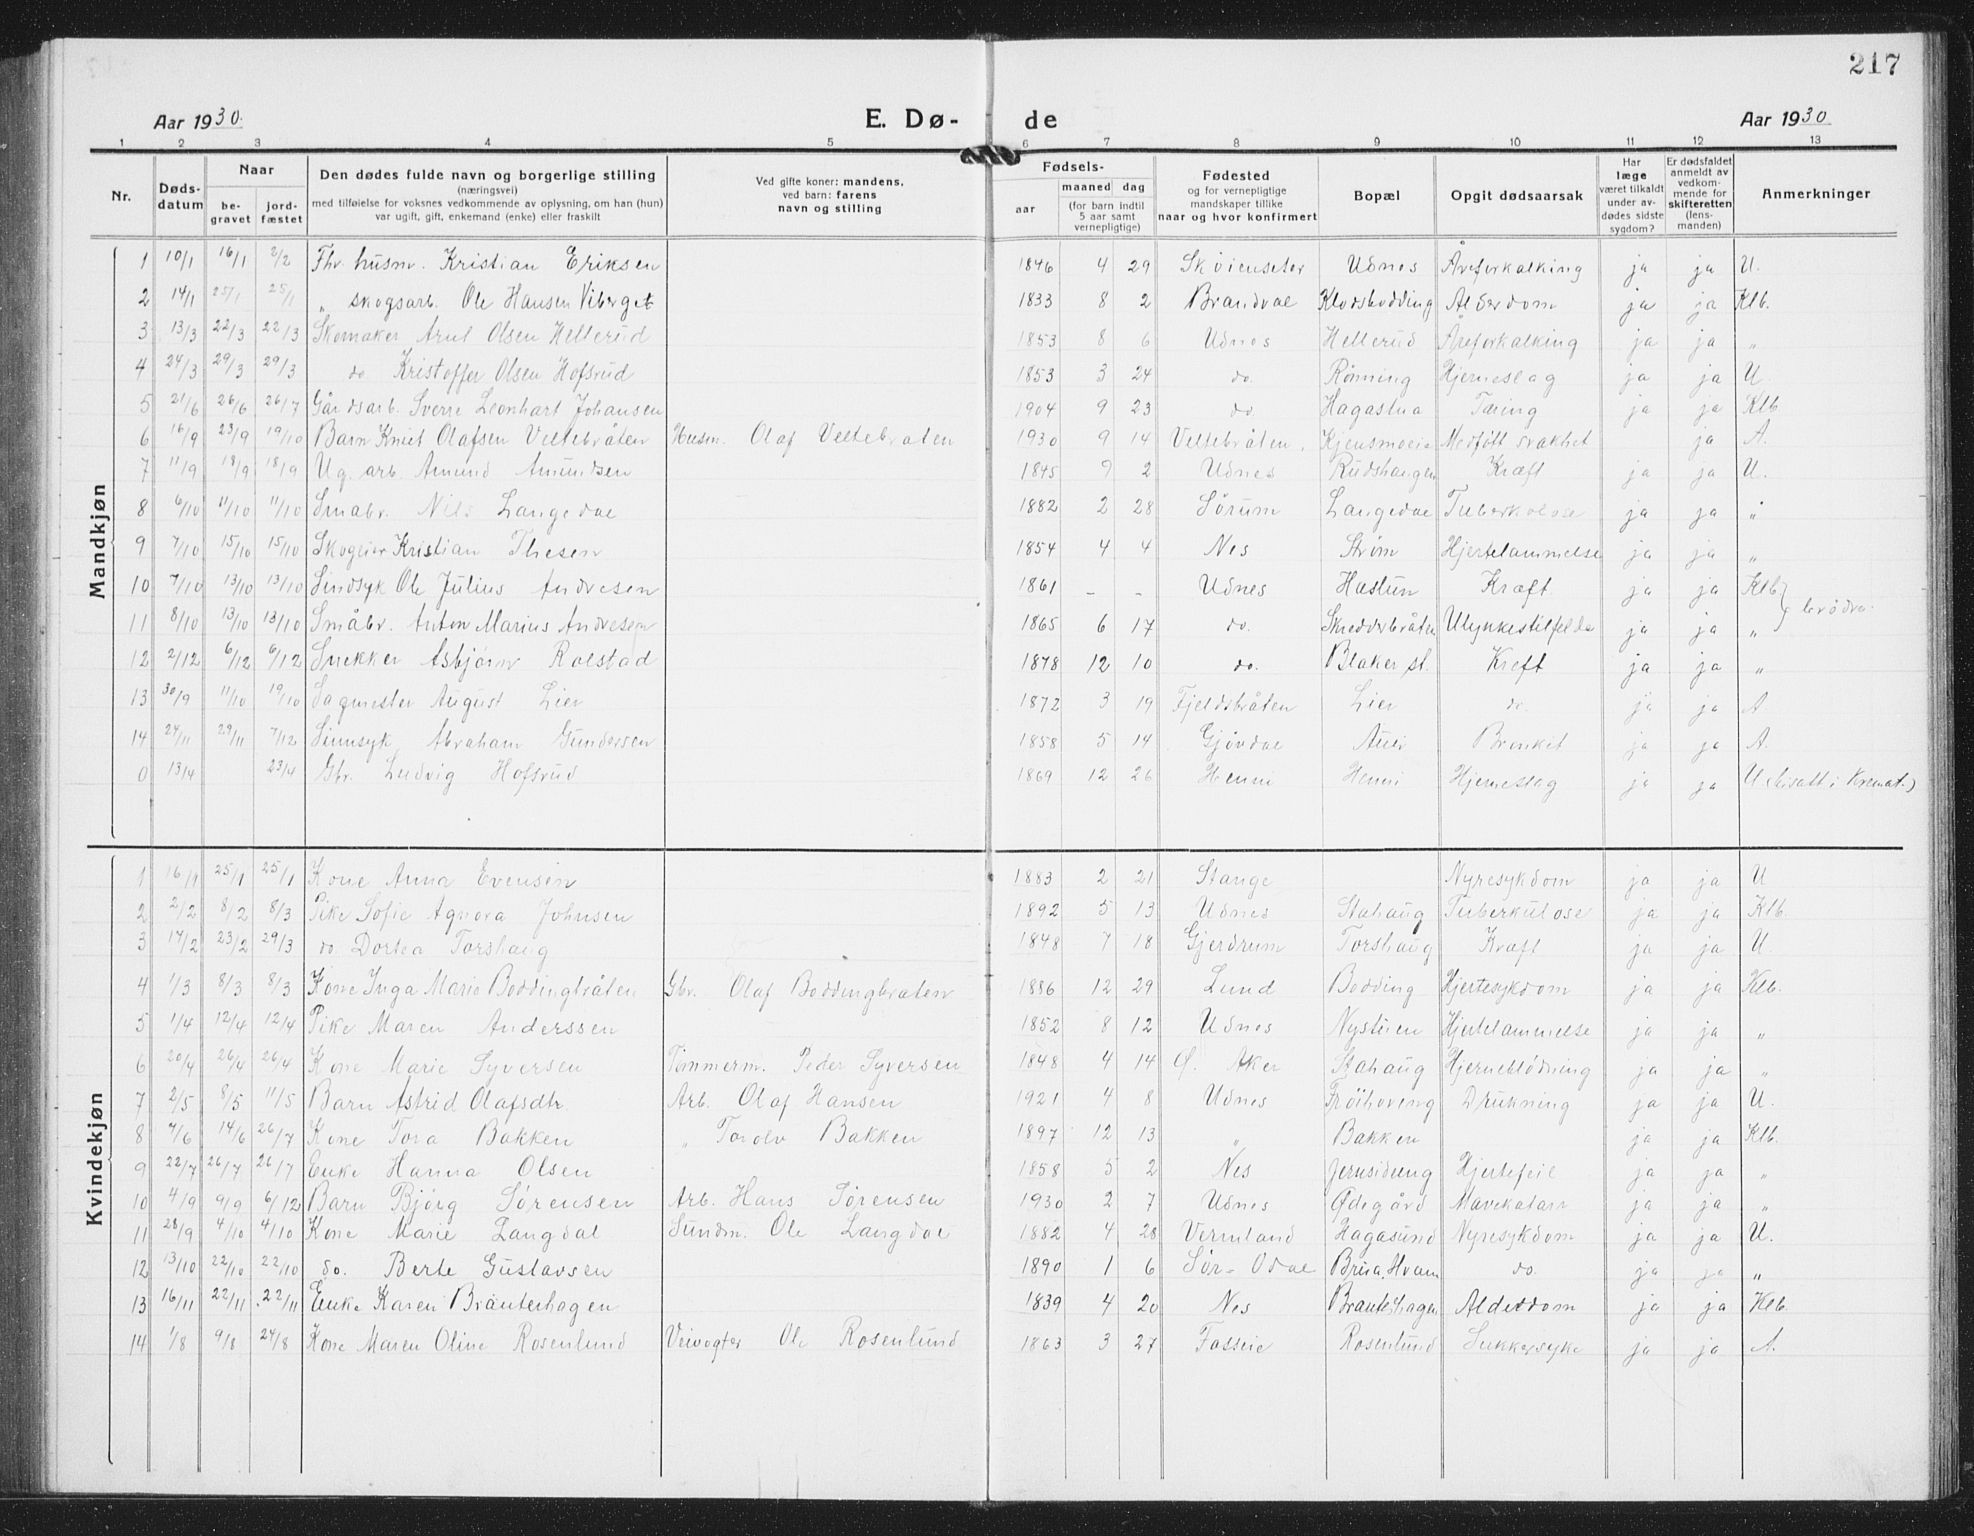 217
Aar 1930. E. Dø- de Aar 1930
1 2 3 4 5 6 7 8 9 10 11 12 13
Nr. Døds-datum Naar be-gravet jord-fæstet Den dødes fulde navn og borgerlige stilling (næringsvei) med tilføielse for voksnes vedkommende av oplysning, om han (hun) var ugift, gift, enkemand (enke) eller fraskilt Ved gifte koner: mandens, ved barn: farens navn og stilling Fødsels- aar maaned dag (for barn indtil 5 aar samt vernepligtige) Fødested og for vernepligtige mandskaper tillike naar og hvor konfirmert Bopæl Opgit dødsaarsak Har læge været tilkaldt under av-dødes sidste sygdom? Er dødsfaldet anmeldt av vedkom-mende for skifteretten (lens-manden) Anmerkninger
Mandkjøn
1 10/1 16/1 2/2 Fhv. husm. Kristian Eriksen 1846 4 29 Skøienseter Udnes Åreforkalking ja ja U.
2 14/1 25/1 25/1 " skogsarb. Ole Hansen Viberget 1833 8 2 Brandval Klodsbodding Alderdom ja ja Klb.
3 13/3 22/3 22/3 Skomaker Arnt Olsen Hellerud 1853 8 6 Udnes Hellerud Åreforkalking ja ja "
4 24/3 29/3 29/3 do Kristoffer Olsen Hofsrud 1853 3 24 do. Rønning Hjerneslag ja ja U.
5 21/6 26/6 26/7 Gårdsarb. Sverre Leonhart Johansen 1904 9 23 do. Hagastua Tæring ja ja Klb.
6 16/9 23/9 19/10 Barn Knut Olafsen Veltebråten Husm. Olaf Veltebråten 1930 9 14 Veltebråten, Kjensmoeie Medfött svakhet ja A.
7 11/9 18/9 18/9 Ug. arb. Amund Amundsen 1845 9 2 Udnes Rudshaugen Kræft ja ja U.
8 6/10 11/10 11/10 Småbr. Nils Langedal 1882 2 28 Sørum Langedal Tuberkolose ja ja "
9 7/10 15/10 15/10 Skogeier Kristian Thesen 1854 4 4 Nes Strøm Hjertelammelse ja ja "
10 7/10 13/10 13/10 Sindsyk Ole Julius Andresen 1861 - - Udnes Haslun Kræft. ja ja Klb. } brødre.
11 8/10 13/10 13/10 Småbr. Anton Marius Andresen 1865 6 17 do. Skredderbråten Ulykkestilfelde ja ja "
12 2/12 6/12 6/12 Snekker Asbjørn Rolstad 1878 12 10 do. Blaker st. Kreft ja ja "
13 30/9 11/10 19/10 Sagmester August Lier 1872 3 19 Fjeldsbråten Lier do. ja ja A
14 24/11 29/11 7/12 Sinnsyk Abraham Gundersen 1858 5 14 Gjøvdal Auli Bronkit ja ja A.
0 13/4 23/4 Gbr. Ludvig Hofsrud 1869 12 26 Henni Henni Hjerneslag ja ja U (bisatt i Kremat.)
Kvindekjøn
1 16/1 25/1 25/1 Kone Anna Evensen 1883 2 21 Stange Nyresykdom ja ja U
2 2/2 8/2 8/3 Pike Sofie Agnora Johnsen 1892 5 13 Udnes Stahaug Tuberkulose ja ja Klb.
3 17/2 23/2 29/3 do. Dortea Torshaug 1848 7 18 Gjerdrum Torshaug Kræft ja ja U.
4 1/3 8/3 8/3 Kone Inga Marie Boddingbråten Gbr. Olaf Boddingbråten 1886 12 29 Lund Bodding Hjertesykdom ja ja Klb.
5 1/4 12/4 12/4 Pike Maren Anderssen 1852 8 12 Udnes Nystuen Hjertelammelse ja ja "
6 20/4 26/4 26/4 Kone Marie Syversen Tömmerm. Peder Syversen 1848 4 14 Ø. Aker Stahaug Hjerneblödning ja ja "
7 2/5 8/5 11/5 Barn Astrid Olafsdtr. Arb. Olaf Hansen 1921 4 8 Udnes Frøihoveng Drukning ja ja U.
8 7/6 14/6 26/7 Kone Tora Bakken " Torolv Bakken 1897 12 13 " Bakken ja ja Klb.
9 22/7 26/7 26/7 Enke Hanna Olsen 1858 5 2 Nes Jernsideeng Hjertefeil ja ja "
10 4/9 9/9 6/12 Barn Bjørg Sørensen Arb. Hans Sørensen 1930 2 7 Udnes Ødegård Mavekatarr ja ja "
11 28/9 4/10 4/10 Kone Marie Langdal Sundm. Ole Langdal 1882 4 28 Vermland Hagasund Nyresykdom ja ja U.
12 13/10 22/10 22/10 do. Berte Gustavsen 1890 1 6 Sør-Odal Hvam do. ja ja "
13 16/11 22/11 22/11 Enke Karen Brautenhagen 1839 4 20 Nes Brautenhagen Alderdom ja ja Klb.
14 1/8 9/8 24/8 Kone Maren Oline Rosenlund Veivogter Ole Rosenlund 1863 3 27 Fosseie Rosenlund Sukkersyke ja ja A.